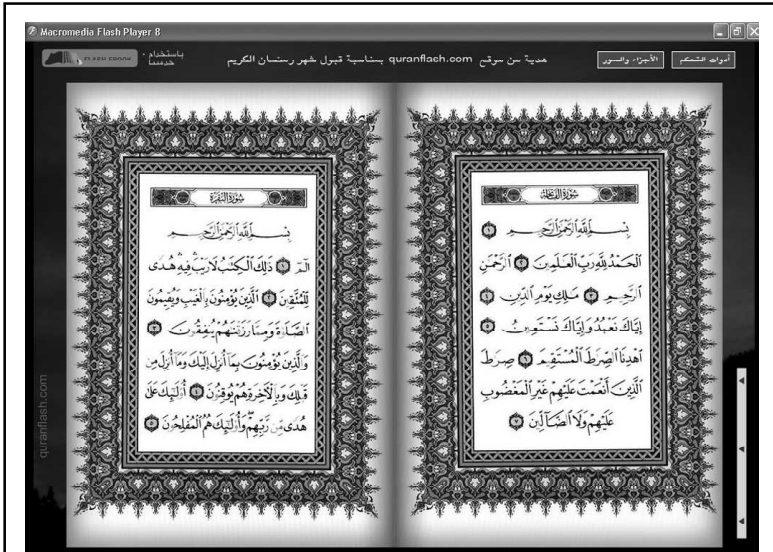 Macromedia Flash Player 8
الأجزاء والسور
هدية سن سوقع quranflach.com بسناسبة قبول شهر رسنسان الكريم
باستخدام
FLASH EBOOK
سُورَةُ الفَاتِحَة
بِسْمِ ٱللَّهِ ٱلرَّحْمَٰنِ ٱلرَّحِيمِ ١
ٱلْحَمْدُ لِلَّهِ رَبِّ ٱلْعَٰلَمِينَ ٢ ٱلرَّحْمَٰنِ
ٱلرَّحِيمِ ٣ مَٰلِكِ يَوْمِ ٱلدِّينِ ٤
إِيَّاكَ نَعْبُدُ وَإِيَّاكَ نَسْتَعِينُ ٥
ٱهْدِنَا ٱلصِّرَٰطَ ٱلْمُسْتَقِيمَ ٦ صِرَٰطَ
ٱلَّذِينَ أَنْعَمْتَ عَلَيْهِمْ غَيْرِ ٱلْمَغْضُوبِ
عَلَيْهِمْ وَلَا ٱلضَّآلِّينَ ٧
سُورَةُ البَقَرَة
بِسْمِ ٱللَّهِ ٱلرَّحْمَٰنِ ٱلرَّحِيمِ
الٓمٓ ١ ذَٰلِكَ ٱلْكِتَٰبُ لَا رَيْبَ فِيهِ هُدًى
لِّلْمُتَّقِينَ ٢ ٱلَّذِينَ يُؤْمِنُونَ بِٱلْغَيْبِ وَيُقِيمُونَ
ٱلصَّلَوٰةَ وَمِمَّا رَزَقْنَٰهُمْ يُنفِقُونَ ٣
وَٱلَّذِينَ يُؤْمِنُونَ بِمَآ أُنزِلَ إِلَيْكَ وَمَآ أُنزِلَ مِن
قَبْلِكَ وَبِٱلْءَاخِرَةِ هُمْ يُوقِنُونَ ٤ أُو۟لَٰٓئِكَ عَلَىٰ
هُدًى مِّن رَّبِّهِمْ وَأُو۟لَٰٓئِكَ هُمُ ٱلْمُفْلِحُونَ ٥
quranflash.com